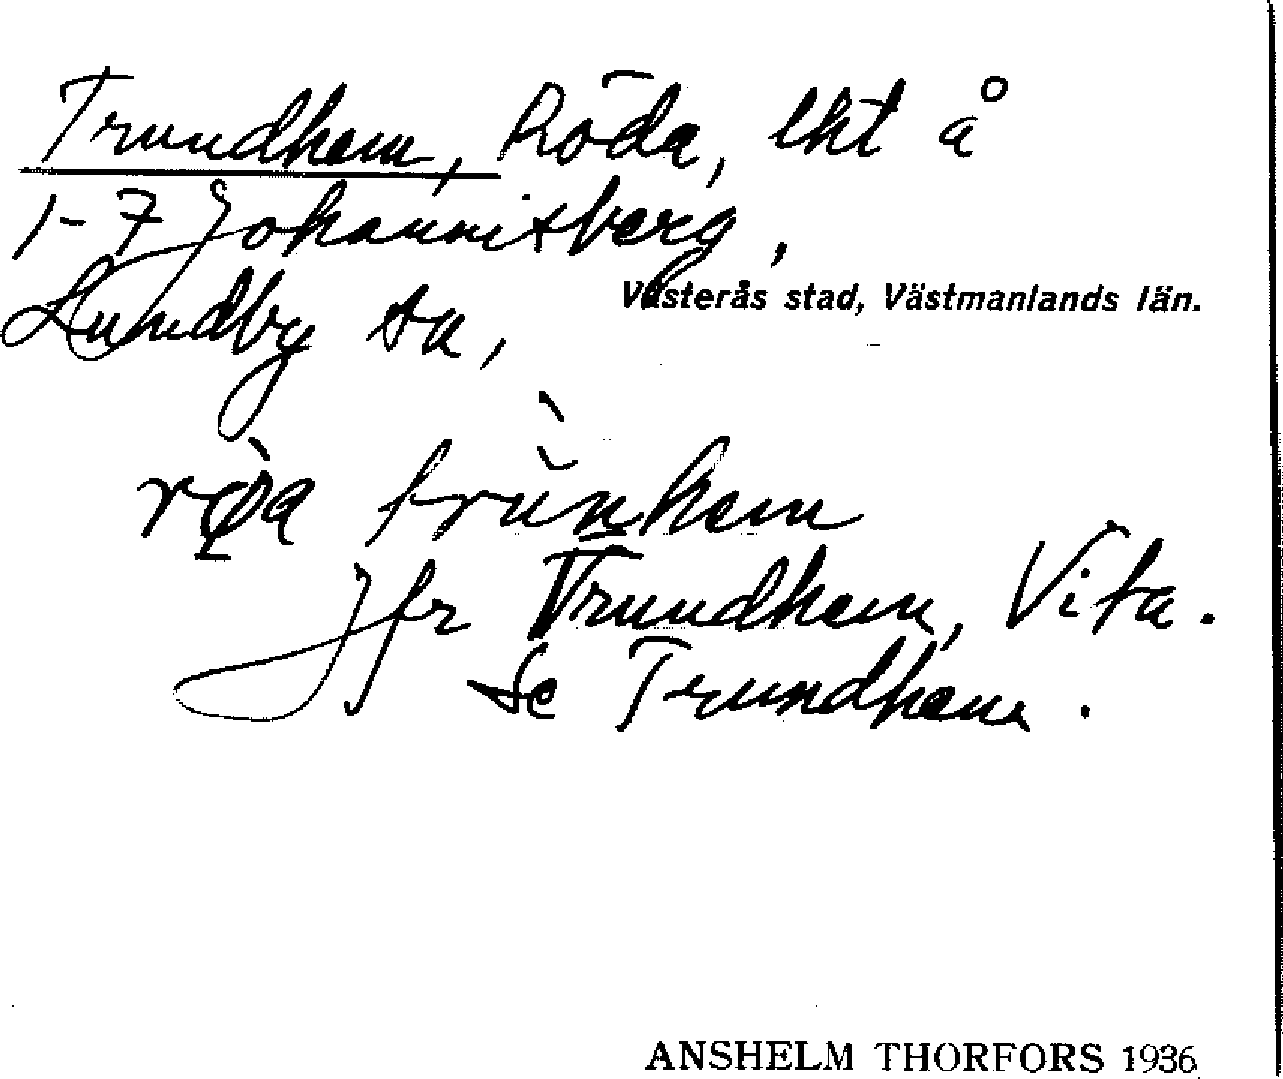 Trundhem, Röda, lht å
1-7 Johannisberg,
Västerås stad, Västmanlands län.
Lundby sn,
trùnhem
Jfr Trundhem, Vita.
Se Trundhem.
ANSHELM THORFORS 1936